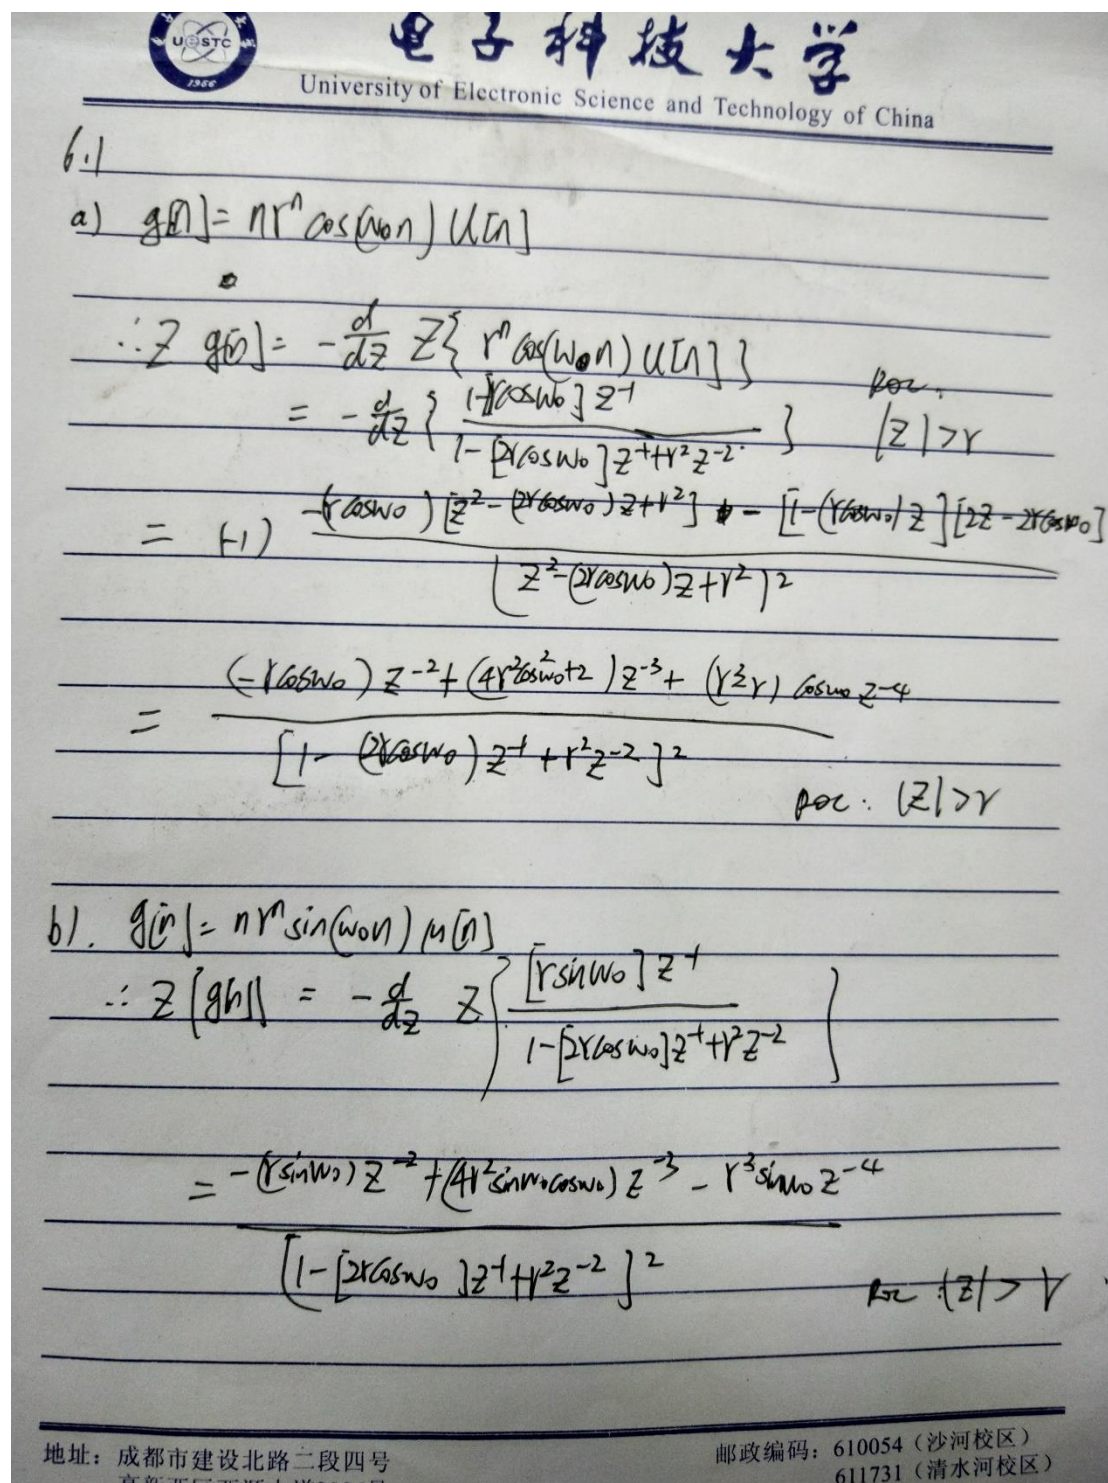 UESTC
1956
电子科技大学
University of Electronic Science and Technology of China
6.1
a) g[n] = nrⁿ cos(w₀n) U[n]
∴ Z g[n] = -d/dz Z{ rⁿ cos(w₀n) U[n] }
= -d/dz { (1-[rcosw₀]z⁻¹) / (1-[2rcosw₀]z⁻¹+r²z⁻²) } ROC: |z|>r
= (-1) (-(rcosw₀)[z²-(2rcosw₀)z+r²] - [1-(rcosw₀)z][2z-2rcosw₀]) / (z²-(2rcosw₀)z+r²)²
= ((-rcosw₀)z⁻²+(4r²cos²w₀+2)z⁻³+(r³-r)cosw₀z⁻⁴) / [1-(2rcosw₀)z⁻¹+r²z⁻²]²
ROC: |z|>r
b). g[n] = nrⁿ sin(w₀n) μ[n]
∴ Z[g[n]] = -d/dz Z{ [rsinw₀]z⁻¹ / (1-[2rcosw₀]z⁻¹+r²z⁻²) }
= (-(rsinw₀)z⁻²+(4r²sinw₀cosw₀)z⁻³-r³sinw₀z⁻⁴) / [1-[2rcosw₀]z⁻¹+r²z⁻²]²
ROC: |z|>r
地址：成都市建设北路二段四号
邮政编码：610054（沙河校区）
611731（清水河校区）